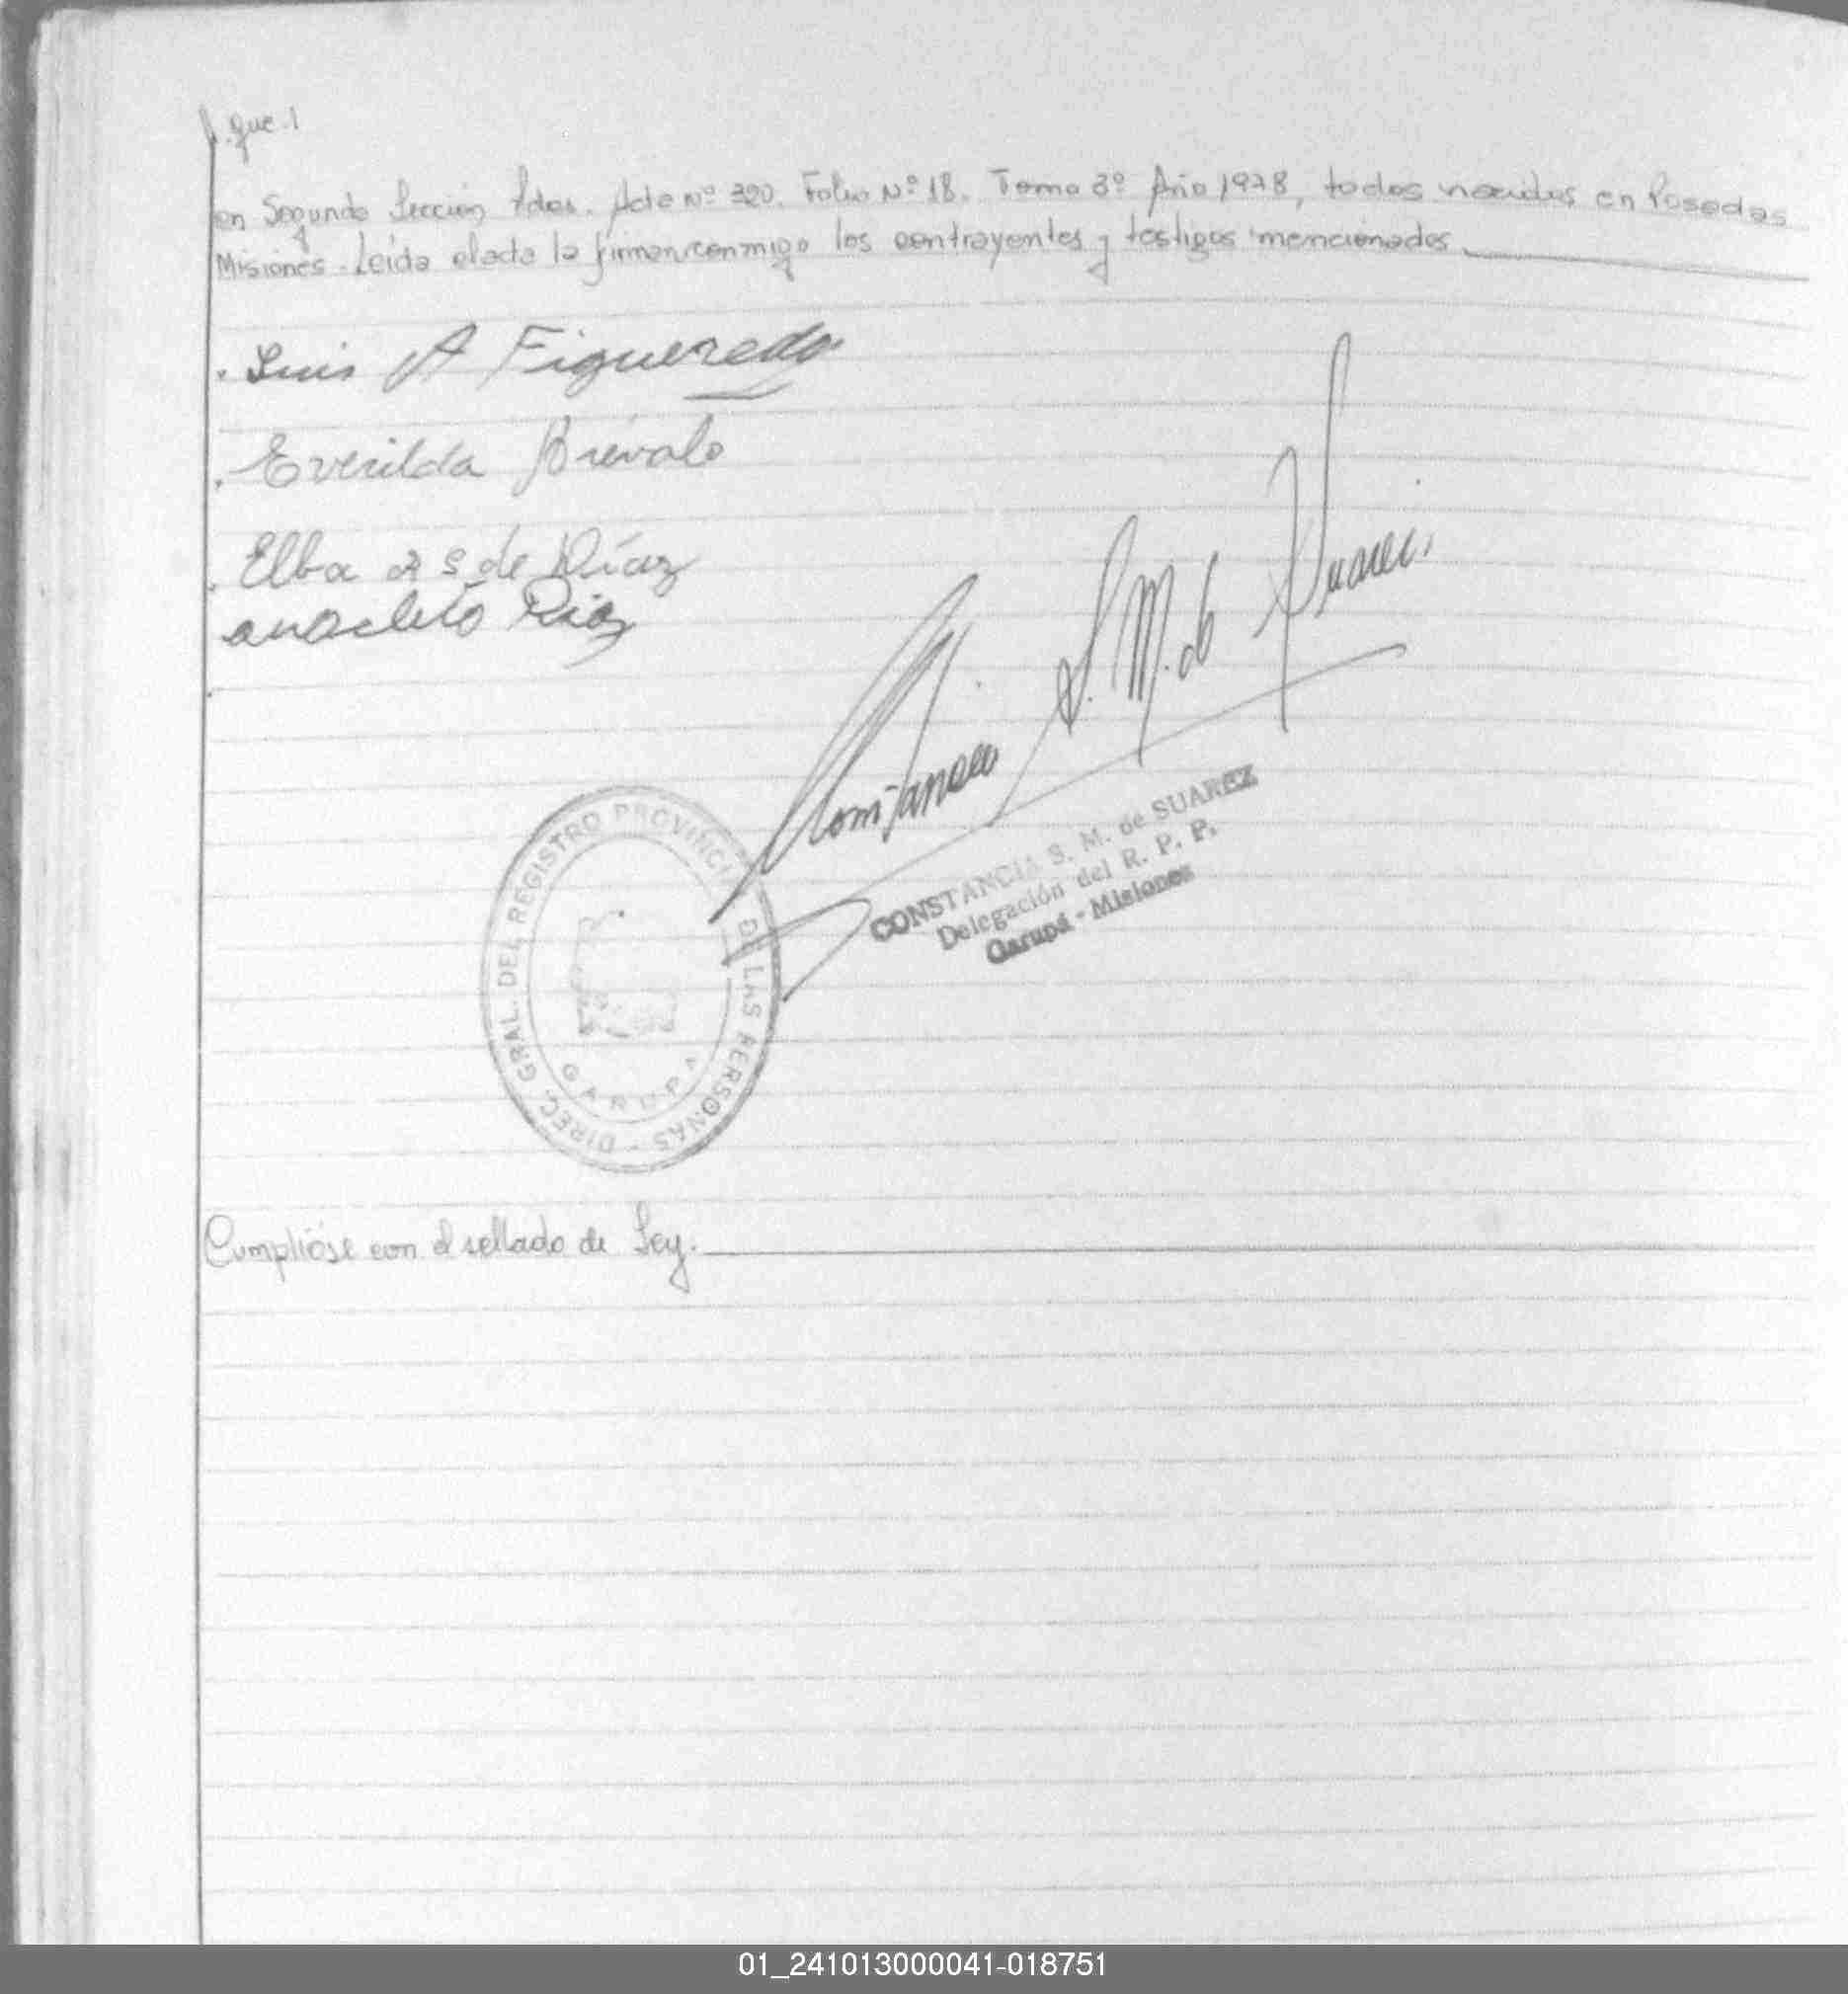 en Segunda Sección Pdas. Acta Nº 320. Folio Nº 18. Tomo 3º Año 1978, todos nacidos en Posadas
Misiones. Leída el acta la firman conmigo los contrayentes y testigos mencionados
Luis A Figueredo
Everilda Arevalo
Elba R S de Díaz
anacleto Diaz
Constancia S. M. de Suarez
CONSTANCIA S. M. de SUAREZ
Delegación del R. P. P.
Garupá - Misiones
DIREC. GRAL. DEL REGISTRO PROVINCIAL DE LAS PERSONAS -
GARUPA
Cumplióse con el sellado de Ley.
01_241013000041-018751